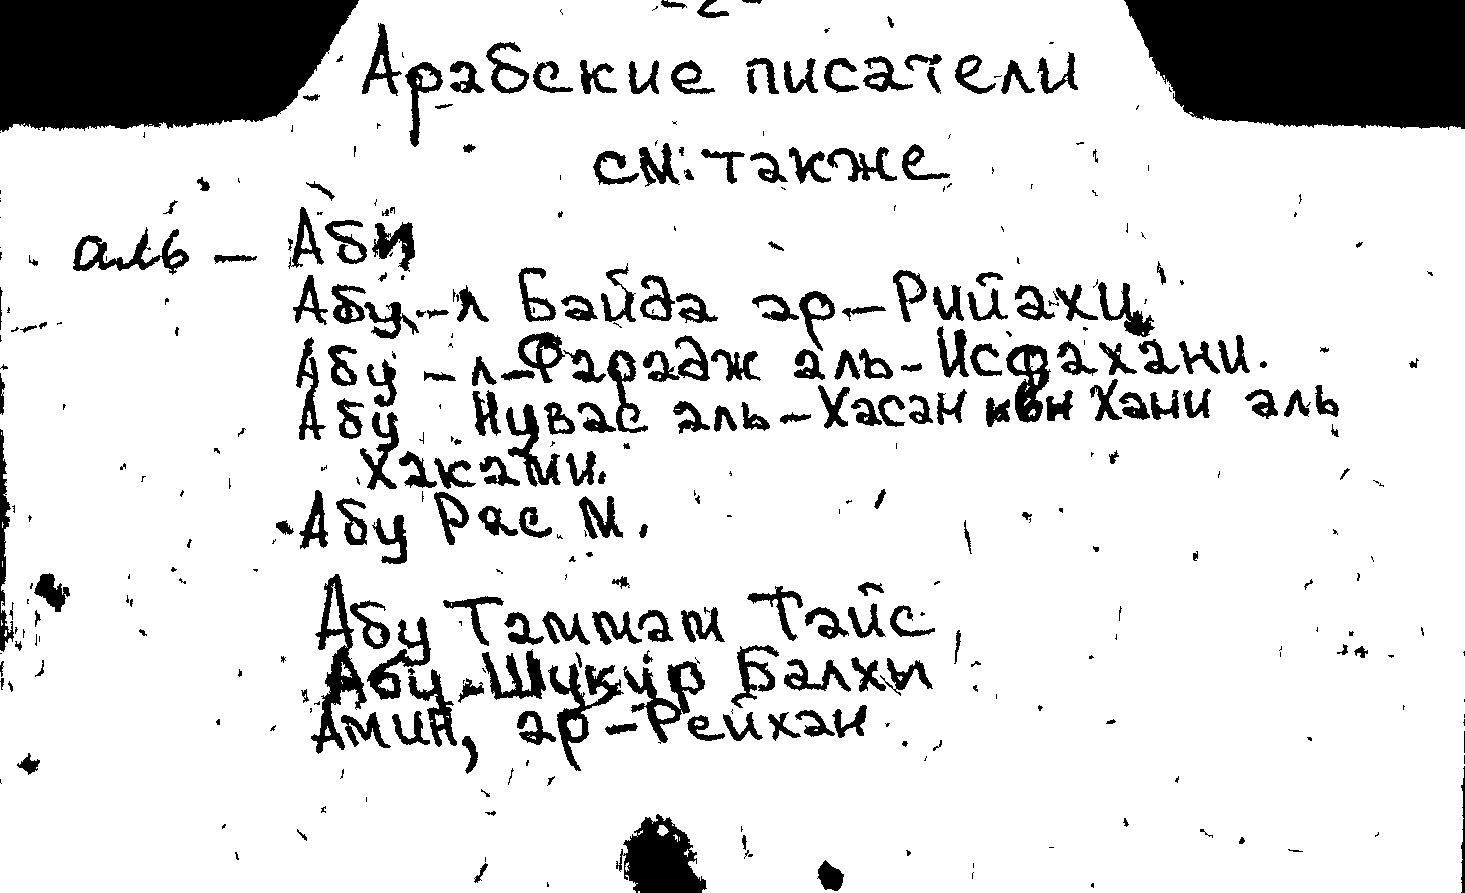 -2-
Арабские писатели
см. также
аль - Аби
Абу-л Байда ар-Рийахи
Абу-л-Фарадж аль-Исфахани.
Абу Нувас аль-Хасан ибн Хани аль
Хаками.
Абу Рас М.
Абу Таммам Тайс
Абу-Шукур Балхи
Амин, ар-Рейхан